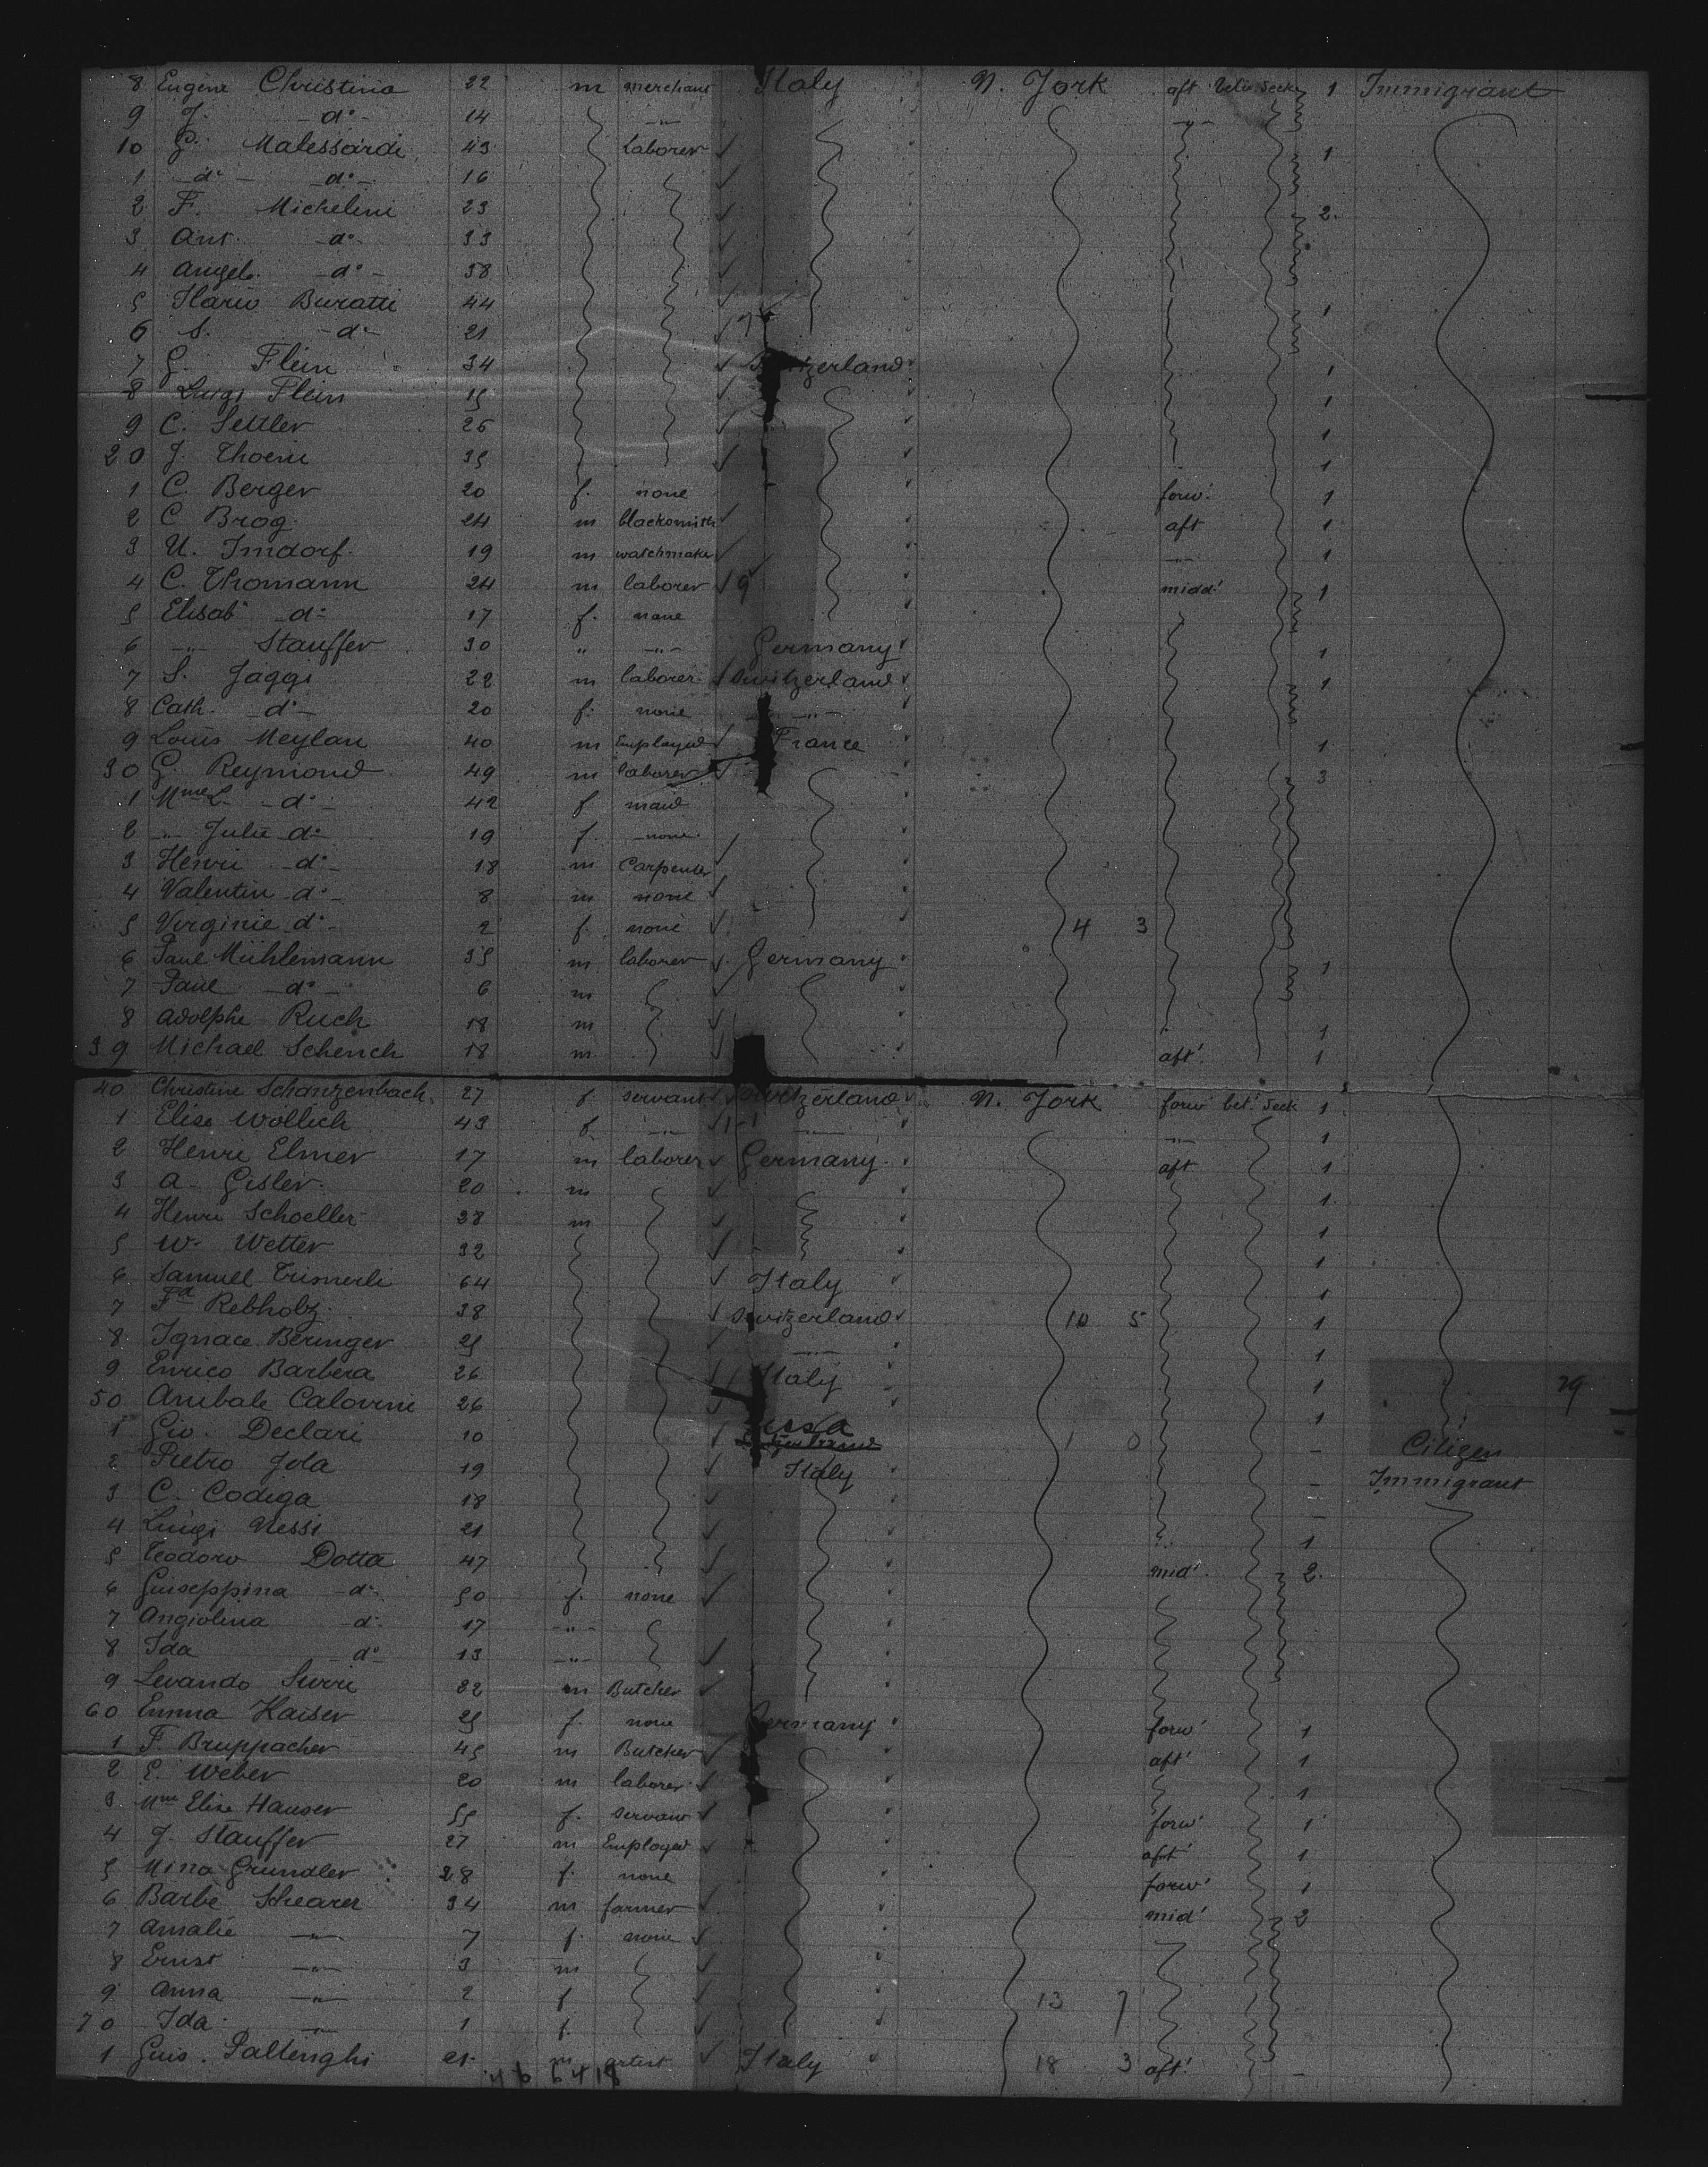 8 Eugène Christina 22 m merchant Italy N. York aft betw. deck 1 Immigrant
9 J. -d°- 14 -"- -"-
10 G. Malessardi 43 Laborer 1
1 -d°- -d°- 16
2 F. Michelini 23 2
3 Ant. -d°- 33
4 Angelo -d°- 38
5 Ilario Buratti 44 1
6 S. -d°- 21 7
7 G. Flein 34 Switzerland 1
8 Luigi Flein 15 1
9 C. Settler 26 1
20 J. Thoeni 35 1
1 C. Berger 20 f. none forw! 1
2 C Brog. 24 m blacksmith aft 1
3 U. Imdorf. 19 m watchmaker -"- 1
4 C. Thomann 24 m laborer 9 midd! 1
5 Elisab. -d°- 17 f. none
6 -"- Stauffer 30 " -"- Germany 1
7 S. Jaggi 22 m laborer Switzerland 1
8 Cath. -d°- 20 f. none -"-
9 Louis Meylan 40 m Employed France 1
30 G. Reymond 49 m laborer 3
1 Mme L. -d°- 42 f maid
2 -"- Julie -d°- 19 f. none
3 Henri -d°- 18 m Carpenter
4 Valentin -d°- 8 m none
5 Virginie -d°- 2 f. none 4 3
6 Paul Mühlemann 35 m laborer Germany 1
7 Paul -d°- 6 m
8 Adolphe Ruch 18 m 1
39 Michael Schench 18 m aft! 1
40 Christine Schanzenbach 27 f servant Switzerland N. York forw! bet! deck 1
1 Elise Wöllich 43 f. -"- 1-1 -"- -"- 1
2 Henri Elmer 17 m laborer Germany aft 1
3 A. Gisler 20 m 1
4 Henri Schoeller 38 m 1
5 W. Wetter 32 1
6 Samuel Trimerli 64 Italy 1
7 Fd Rebholz 38 Switzerland 10 5 1
8 Ignace Beringer 25 -"- 1
9 Enrico Barbera 26 Italy 1 79
50 Anibale Calovini 26 1
1 Gio. Declari 10 1 0 - Citizen
2 Pietro Jola 19 Italy - Immigrant
3 C. Codiga 18 -
4 Luigi Nessi 21 1
5 Teodoro Dotta 47 mid! 2
6 Guiseppina -d°- 50 f. none
7 Angiolina -d°- 17 -"-
8 Ida -d°- 13 -"-
9 Levando Surri 32 m Butcher
60 Emma Kaiser 25 f. none Germany forw! 1
1 F. Bruppacher 45 m Butcher aft! 1
2 E. Weber 20 m laborer 1
3 Mme Elise Hauser 55 f. servant forw! 1
4 J. Stauffer 27 m Employed aft! 1
5 Mina Gründler 28 f. none forw! 1
6 Barbe Shearer 34 m farmer mid! 2
7 Amalie -"- 7 f. none
8 Ernst -"- 3 m
9 Anna -"- 2 f 13 7
70 Ida -"- 1 f.
1 Guis. Paltenghi 21 m artist Italy 18 3 aft! -